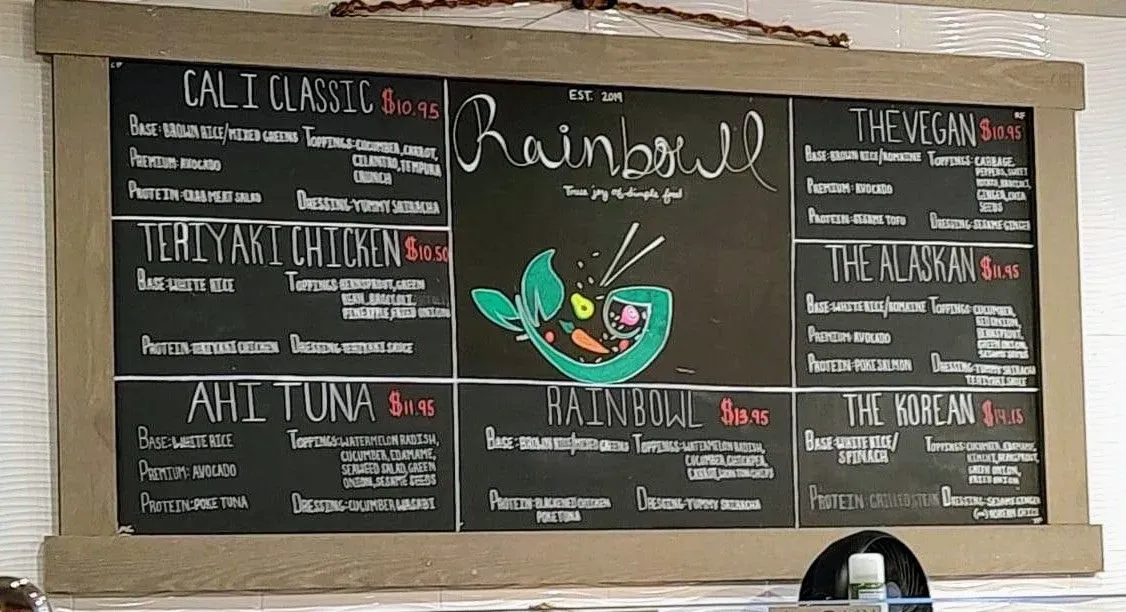 CALI CLASSIC $10.95
BASE: BROWN RICE/MIXED GREENS TOPPINGS: CUCUMBER, CARROT,
CILANTRO, TEMPURA
CRUNCH
PREMIUM: AVOCADO
PROTEIN: CRAB MEAT SALAD DRESSING: YUMMY SRIRACHA
TERIYAKI CHICKEN $10.50
BASE: WHITE RICE TOPPINGS: BEANSPROUT, GREEN
BEAN, BROCCOLI,
PINEAPPLE, FRIED ONIONS
PROTEIN: TERIYAKI CHICKEN DRESSING: TERIYAKI SAUCE
AHI TUNA $11.95
BASE: WHITE RICE TOPPINGS: WATERMELON RADISH,
CUCUMBER, EDAMAME,
SEAWEED SALAD, GREEN
ONION, SESAME SEEDS
PREMIUM: AVOCADO
PROTEIN: POKE TUNA DRESSING: CUCUMBER WASABI
EST. 2019
Rainbowll
True joy of simple food
RAINBOWL $13.95
BASE: BROWN RICE/MIXED GREENS TOPPINGS: WATERMELON RADISH,
CUCUMBER,
CARROT, WONTON CHIPS
PROTEIN: BLACKENED CHICKEN
POKE TUNA
DRESSING: YUMMY SRIRACHA
THE VEGAN $10.95
BASE: BROWN RICE/ROMAINE TOPPINGS: CABBAGE,
PEPPERS, SWEET
POTATO, BROCCOLI,
GINGER, CHIA
SEEDS
PREMIUM: AVOCADO
PROTEIN: SESAME TOFU DRESSING: SESAME GINGER
THE ALASKAN $11.95
BASE: WHITE RICE/ROMAINE TOPPINGS: CUCUMBER,
RED ONION,
BEANSPROUT,
GREEN ONION,
SESAME SEEDS
PREMIUM: AVOCADO
PROTEIN: POKE SALMON DRESSING: YUMMY SRIRACHA
TERIYAKI SAUCE
THE KOREAN $14.15
BASE: WHITE RICE/
SPINACH
TOPPINGS: CUCUMBER, EDAMAME,
KIMCHI, BEANSPROUT,
GREEN ONION,
FRIED ONION
PROTEIN: GRILLED STEAK DRESSING: SESAME GINGER
(or) KOREAN